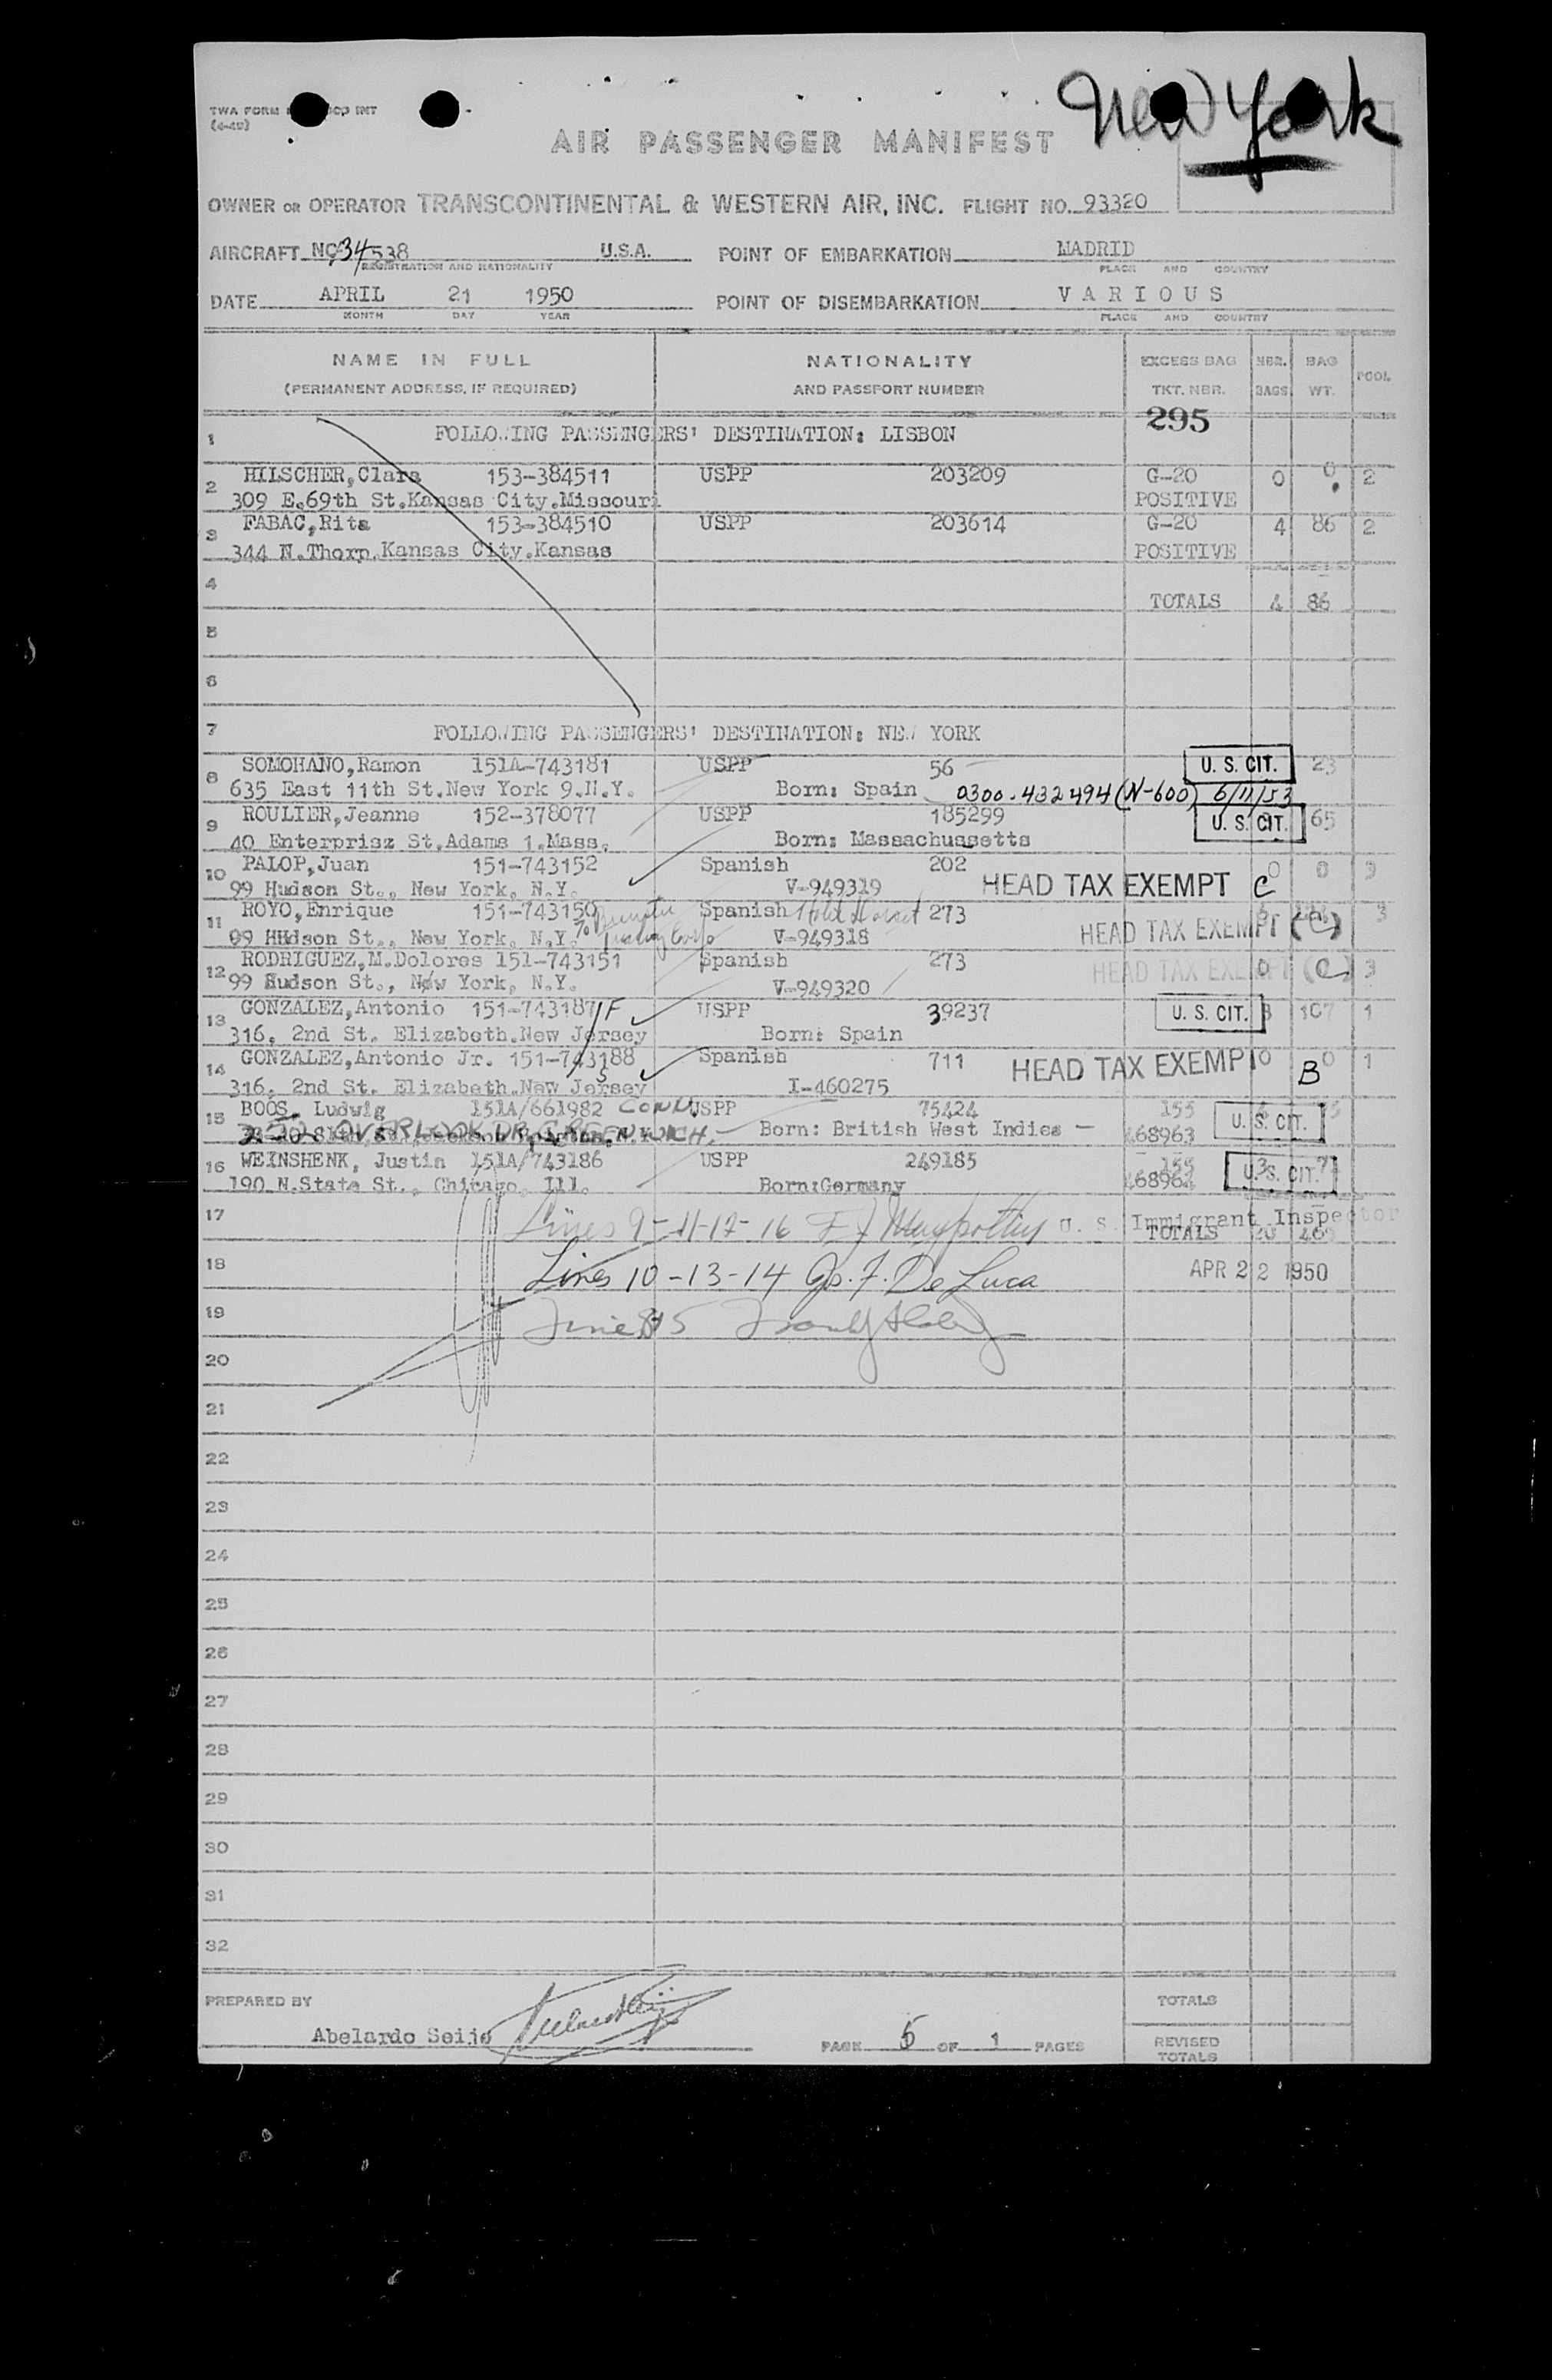 TWA FORM INT
(4-49)
New York
AIR PASSENGER MANIFEST
OWNER OR OPERATOR TRANSCONTINENTAL & WESTERN AIR, INC. FLIGHT NO. 93320
AIRCRAFT NC34538 U.S.A. POINT OF EMBARKATION MADRID
REGISTRATION AND NATIONALITY PLACE AND COUNTRY
DATE APRIL 21 1950 POINT OF DISEMBARKATION VARIOUS
MONTH DAY YEAR PLACE AND COUNTRY
NAME IN FULL NATIONALITY EXCESS BAG NBR. BAG POOL
(PERMANENT ADDRESS, IF REQUIRED) AND PASSPORT NUMBER TKT. NBR. BAGS WT.
295
1 FOLLOWING PASSENGERS' DESTINATION: LISBON
2 HILSCHER,Clara 153-384511 USPP 203209 G-20 0 0 2
309 E.69th St.Kansas City.Missouri POSITIVE
3 FABAC,Rita 153-384510 USPP 203614 G-20 4 86 2
344 N.Thorp.Kansas City.Kansas POSITIVE
4 TOTALS 4 86
5
6
7 FOLLOWING PASSENGERS' DESTINATION: NEW YORK
8 SOMOHANO,Ramon 151A-743181 USPP 56 U. S. CIT. 23
635 East 11th St.New York 9.N.Y. Born: Spain 0300-432494 (N-600) 6/11/53
9 ROULIER,Jeanne 152-378077 USPP 185299 U. S. CIT. 65
40 Enterprisz St.Adams 1.Mass. Born: Massachusetts
10 PALOP,Juan 151-743152 Spanish 202 HEAD TAX EXEMPT C 0 0 3
99 Hudson St., New York, N.Y. V-949319
11 ROYO,Enrique 151-743150 Spanish 273 HEAD TAX EXEMPT (C) 3
99 HHdson St., New York, N.Y. V-949318
12 RODRIGUEZ,M.Dolores 151-743151 Spanish 273 HEAD TAX EXEMPT 0 (C) 3
99 Hudson St., New York, N.Y. V-949320
13 GONZALEZ,Antonio 151-743187 F USPP 39237 U. S. CIT. 3 107 1
316, 2nd St. Elizabeth.New Jersey Born: Spain
14 GONZALEZ,Antonio Jr. 151-743188 Spanish 711 HEAD TAX EXEMPT 0 B 0 1
316, 2nd St. Elizabeth.New Jersey I-460275
15 BOOS, Ludwig 151A/661982 CONN. USPP 75424 155 U. S. CIT.
OVERLOOK DR. GREENWICH. Born: British West Indies 468963
16 WEINSHENK, Justin 151A/743186 USPP 249185 155 3 U. S. CIT.
190 N.State St., Chicago, Ill. Born:Germany 468964
17 Lines 9-11-12-16 U. S. Immigrant Inspector
TOTALS
18 Lines 10-13-14 Jos. F. De Luca APR 22 1950
19
20
21
22
23
24
25
26
27
28
29
30
31
32
PREPARED BY TOTALS
Abelardo Seijo PAGE 5 OF 1 PAGES REVISED
TOTALS